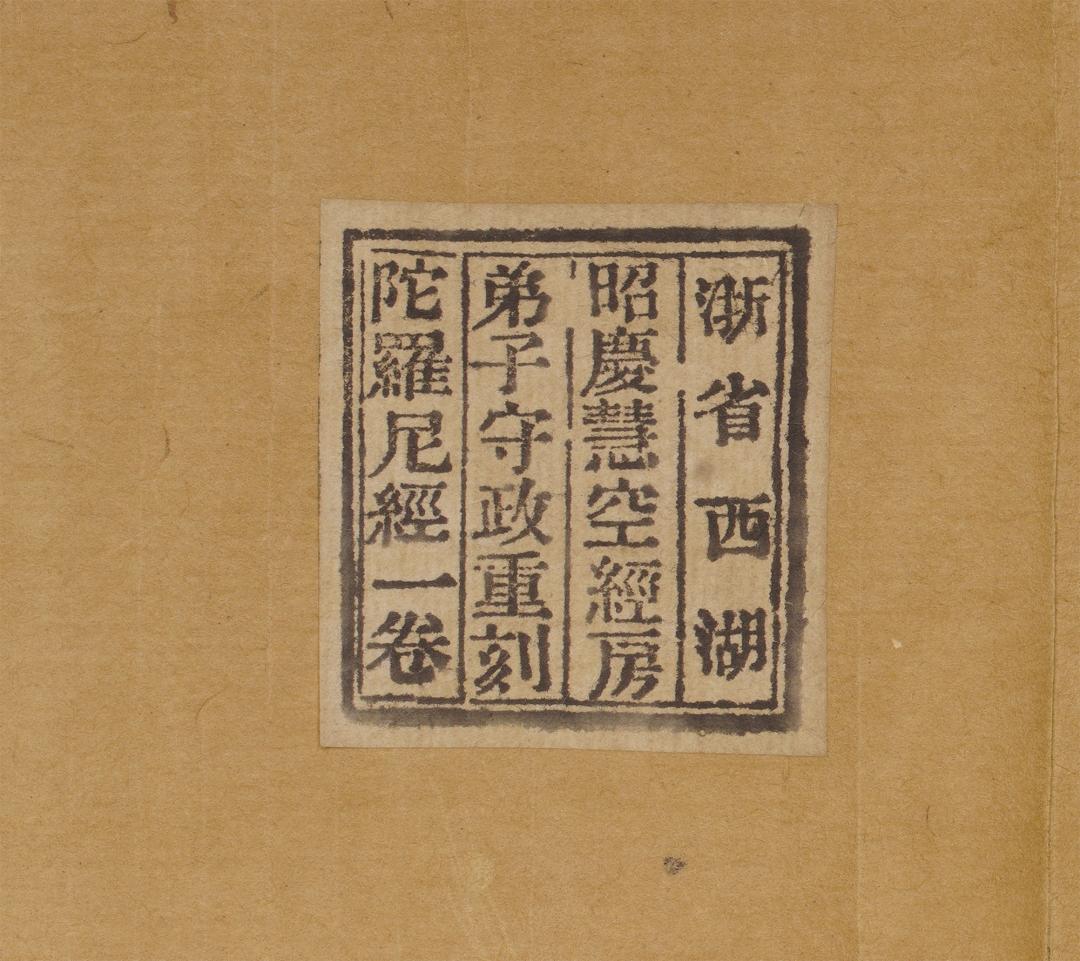 浙省西湖
昭慶慧空經房
弟子守政重刻
陀羅尼經一卷